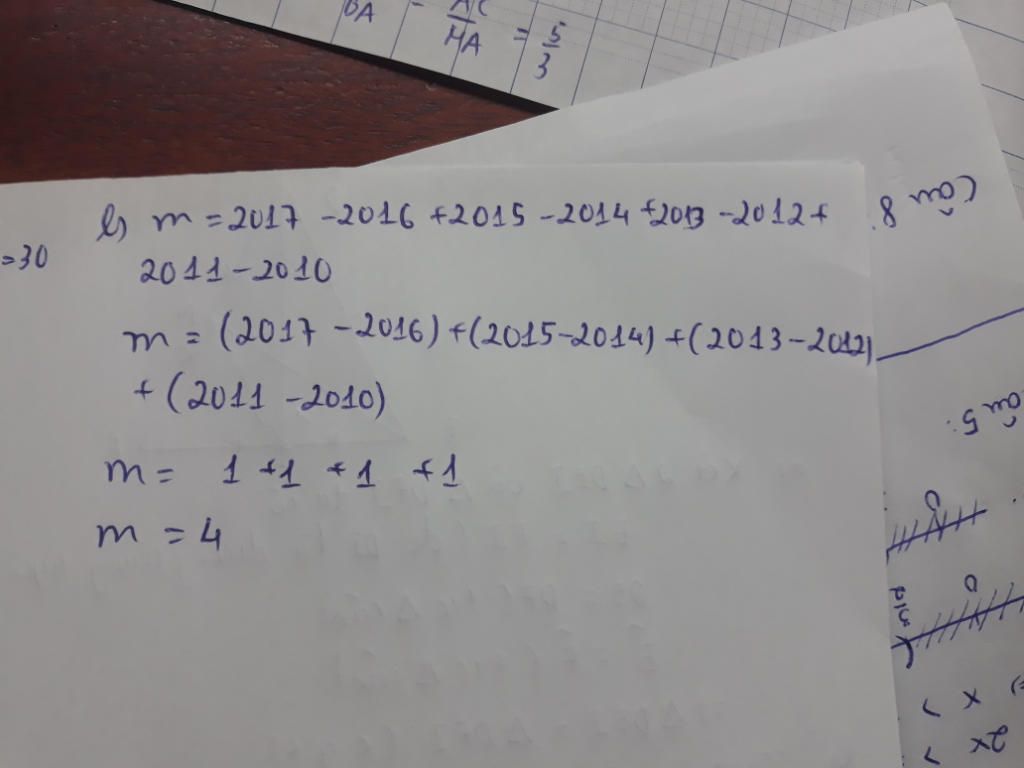 BA - AC/HA = 5/3
=30
b) m = 2017 - 2016 + 2015 - 2014 + 2013 - 2012 +
2011 - 2010
m = (2017 - 2016) + (2015 - 2014) + (2013 - 2012)
+ (2011 - 2010)
m = 1 + 1 + 1 + 1
m = 4
Câu 8:
Câu 5:
0
0
x >
2x >